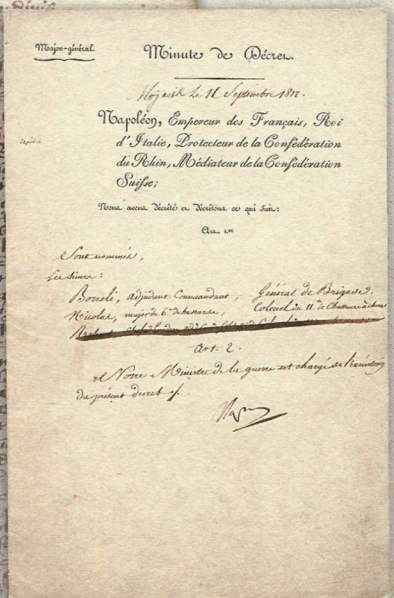 Major-général.
Minute de Décret.
Mojaisk Le 11 Septembre 1812.
Napoléon, Empereur des Français, Roi
d'Italie, Protecteur de la Confédération
du Rhin, Médiateur de la Confédération
Suisse;
Nous avons décrété et décrétons ce qui suit:
Art. 1er
Sont nommés,
Les Sieurs:
Borreli, Adjudant Commandant, Général de Brigade.
Nicolas, major du 6e de Colonel du 11e de Chasseurs
Art. 2.
Notre Ministre de la guerre est chargé de l'exécution
du présent decret ./.
Nap